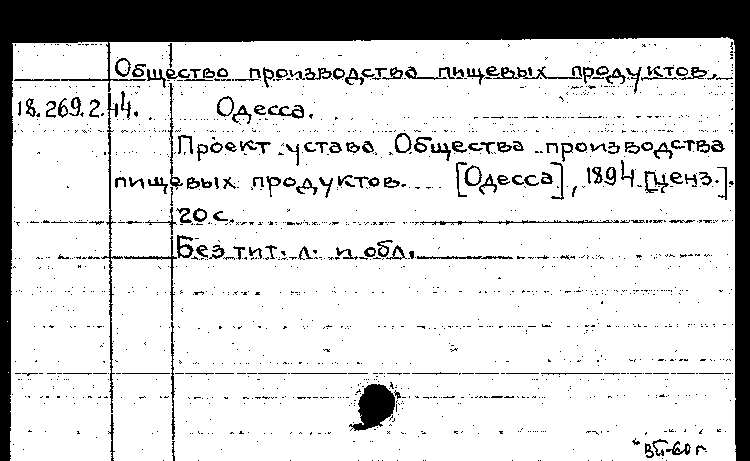 Общество производства пищевых продуктов.
18.269.2.44. Одесса.
Проект устава Общества производства
пищевых продуктов. [Одесса], 1894 [ценз.].
20 с.
Без тит. л. и обл.